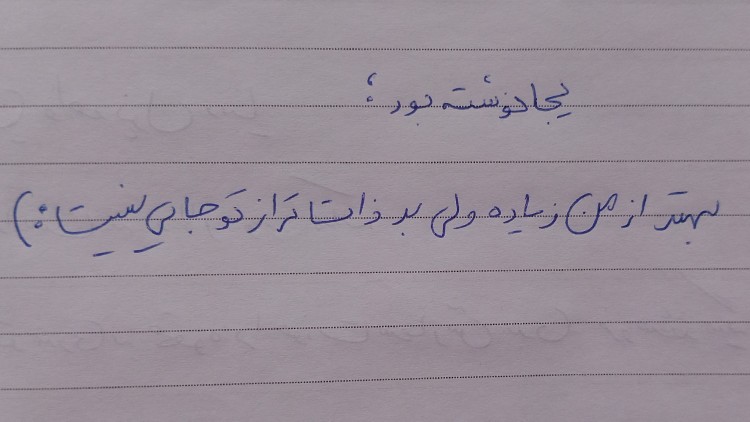 یجا نوشته بود؛
بهتر از من زیاده ولی بد ذات تر از تو جایی نیست :)